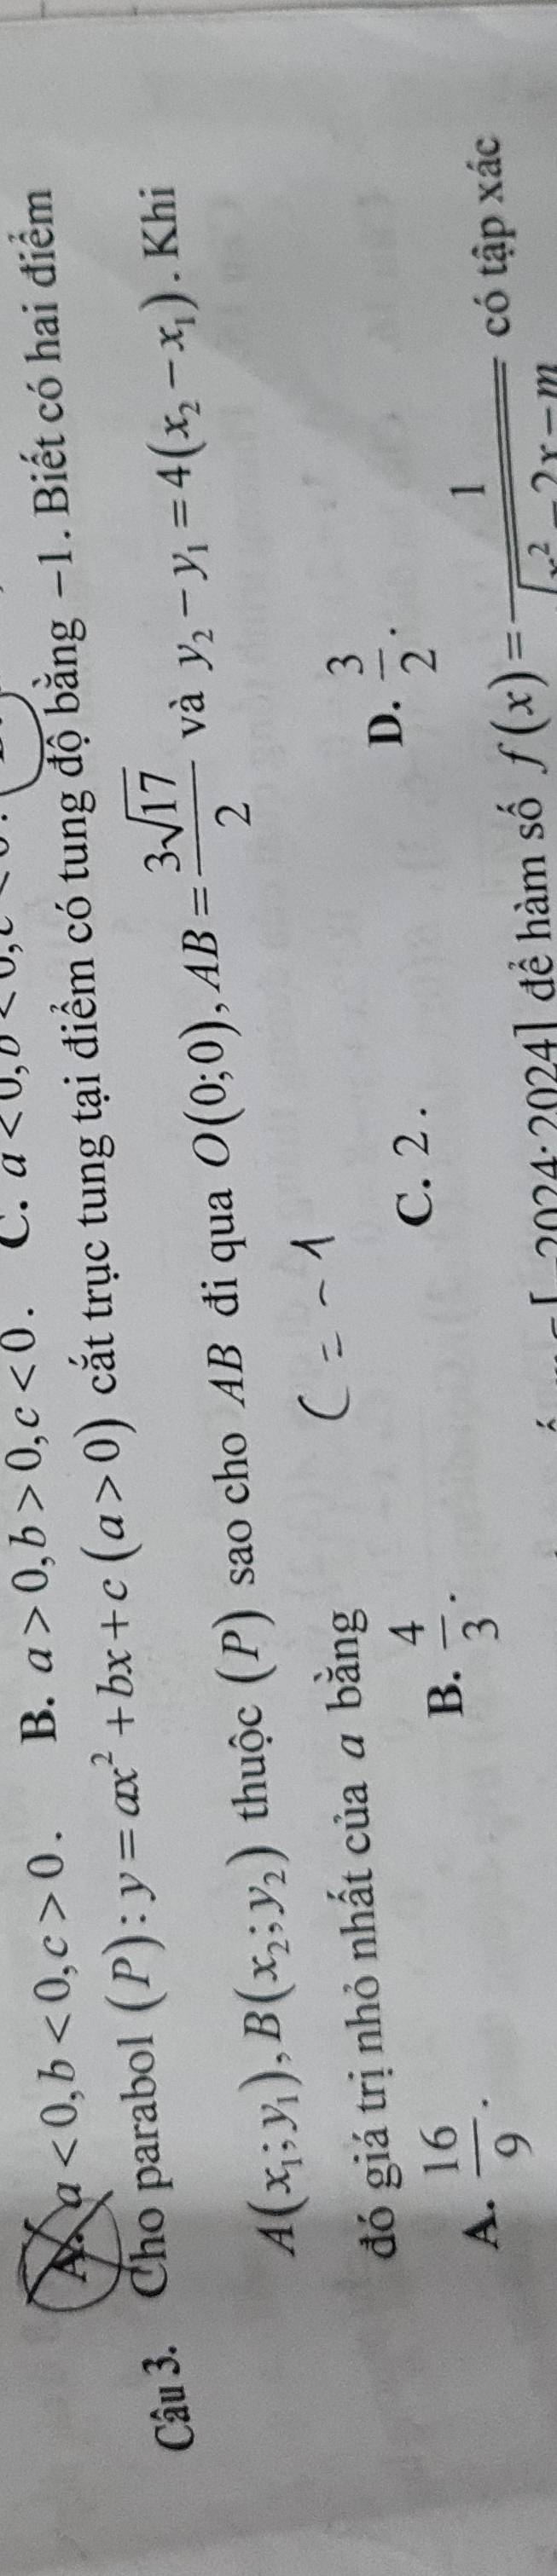 A. a < 0, b < 0, c > 0. B. a > 0, b > 0, c < 0. C. a < 0, b < 0, c <
Câu 3. Cho parabol (P): y = ax² + bx + c (a > 0) cắt trục tung tại điểm có tung độ bằng −1. Biết có hai điểm
A(x₁; y₁), B(x₂; y₂) thuộc (P) sao cho AB đi qua O(0;0), AB = 3√17/2 và y₂ − y₁ = 4(x₂ − x₁). Khi
đó giá trị nhỏ nhất của a bằng
C = −1
A. 16/9. B. 4/3. C. 2. D. 3/2.
[−2024; 2024] để hàm số f(x) = 1/√(x² − 2x − m có tập xác